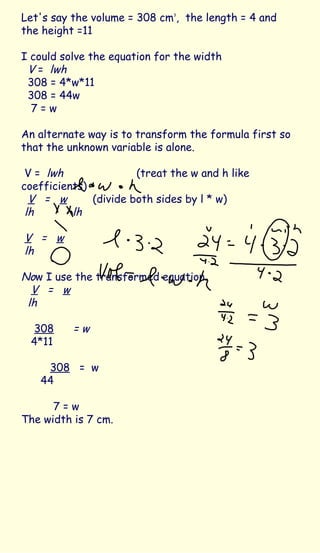 Let's say the volume = 308 cm³, the length = 4 and
the height =11
I could solve the equation for the width
V = lwh
308 = 4*w*11
308 = 44w
7 = w
An alternate way is to transform the formula first so
that the unknown variable is alone.
V = lwh (treat the w and h like
coefficients) w • h
V = w (divide both sides by l * w)
lh lh
V = w
lh
l · 3 · 2
V l w h
24 = 4 · 3 · 2
4·2 4·2
Now I use the transformed equation
Vol = l w · h
V = w
lh
308 = w
4*11
308 = w
44
7 = w
The width is 7 cm.
24 w
4·2 = 3
24 = 3
8